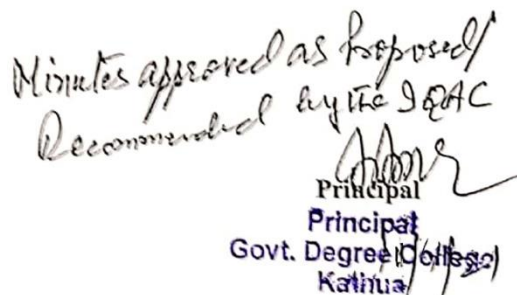 Minutes approved as proposed/
Recommended by the IQAC
Principal
Principal
Govt. Degree College
Kathua